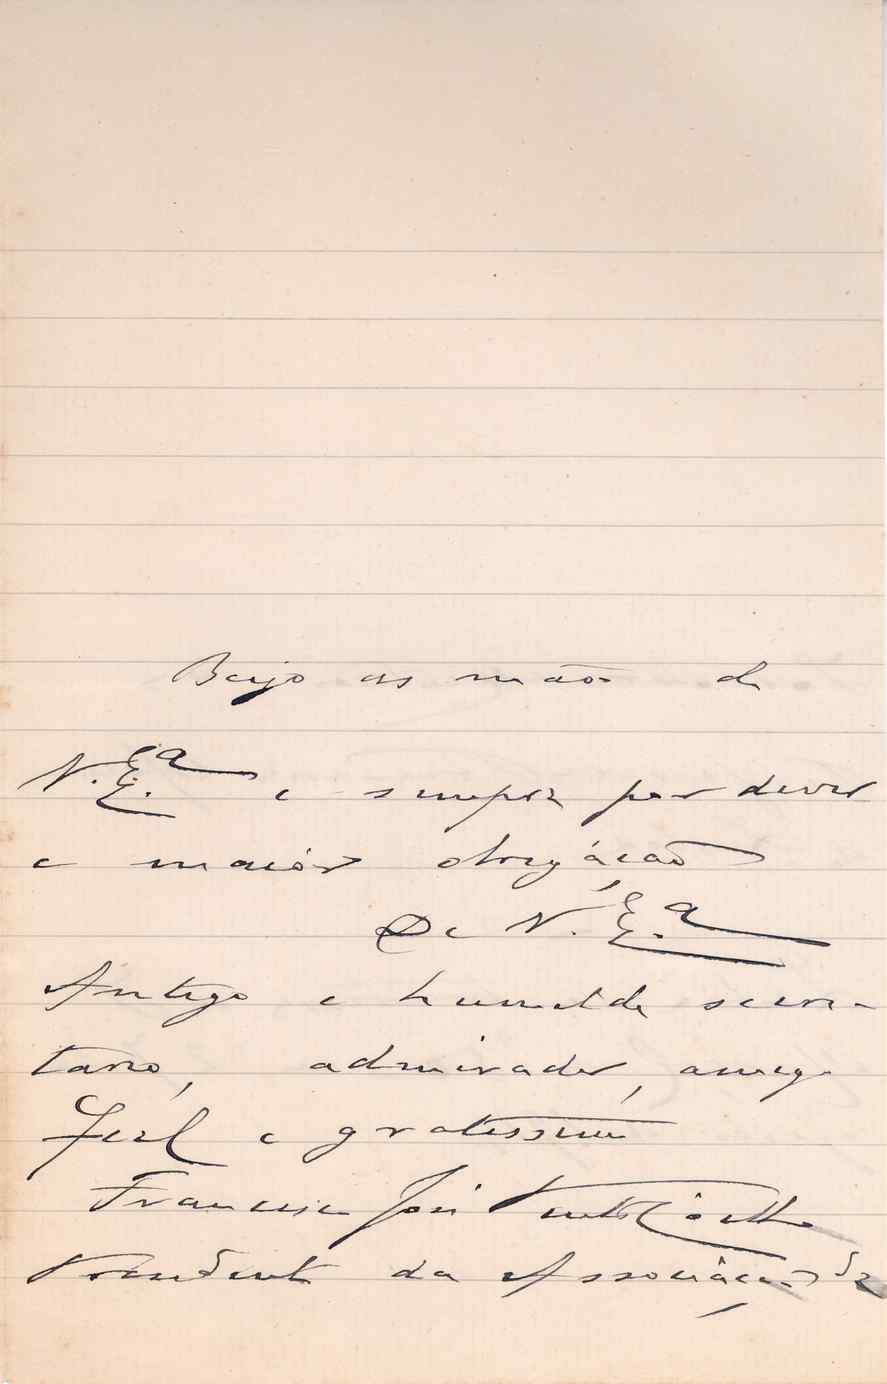 Beijo as mãos de
V. Ex.ª e sempre por dever
e maior obrigação
De V. Ex.ª
Antigo e humilde secre-
tario, admirador, amigo
fiel e gratissimo
Francisco José Coelho
Presidente da Associação de